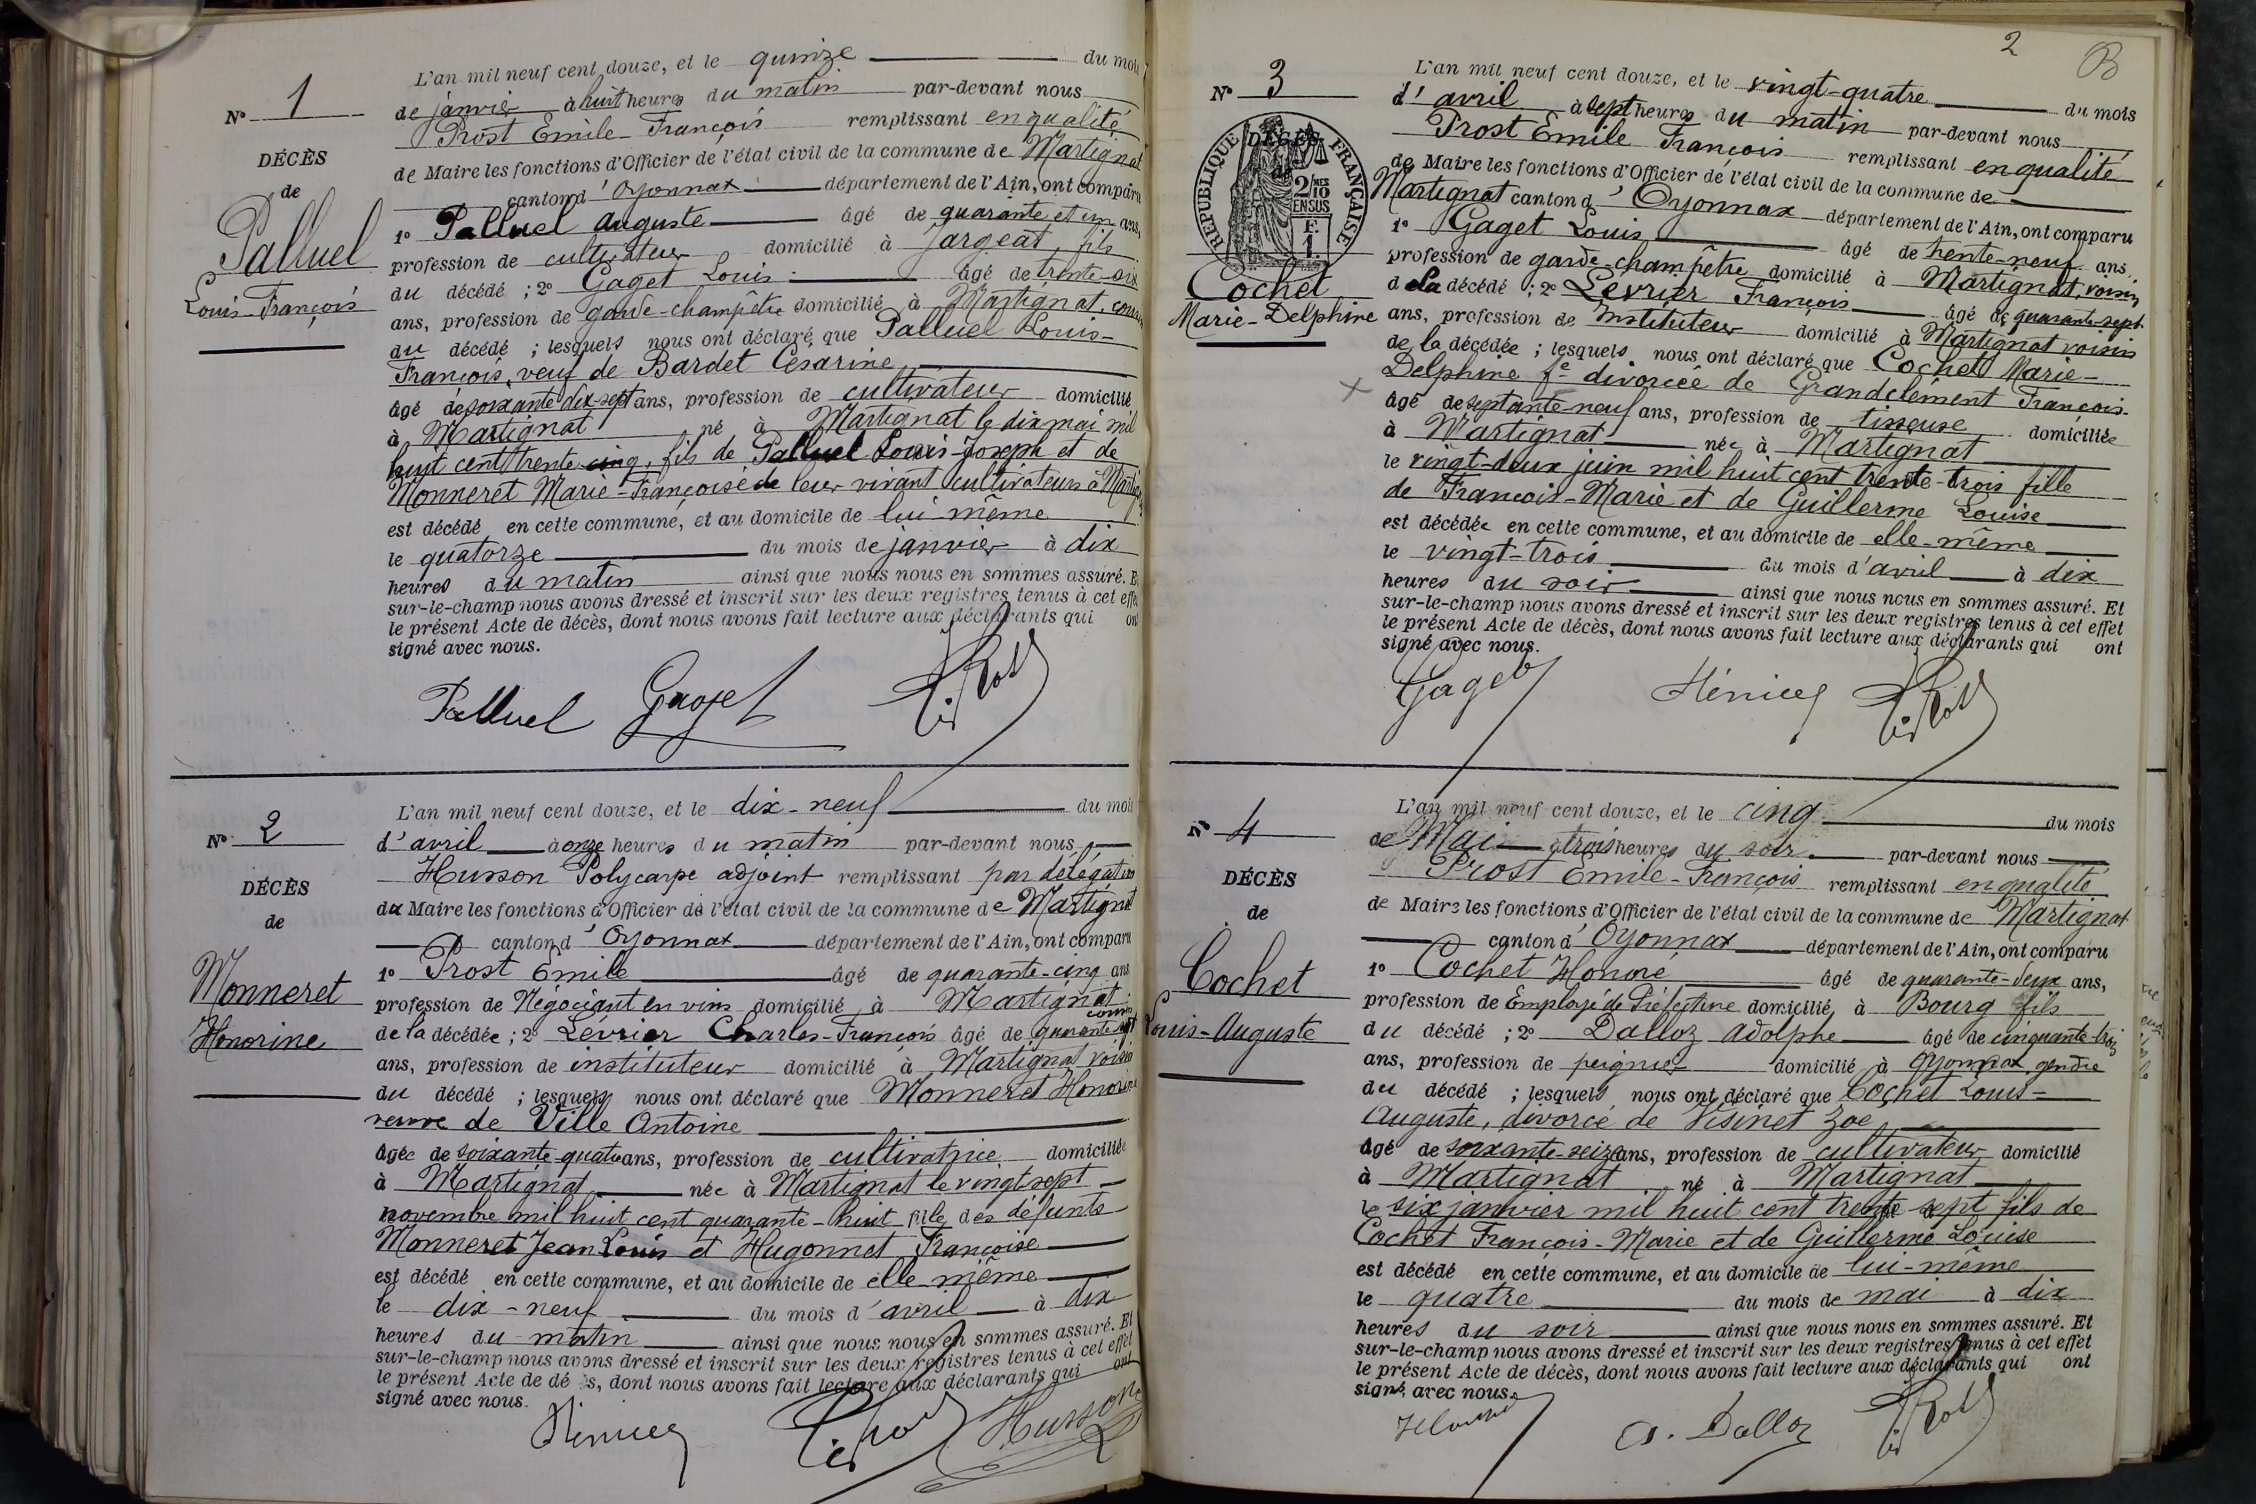 L'an mil neuf cent douze, et le quinze du mois
No 1
de janvier à huit heures du matin par-devant nous
Prost Emile-François remplissant en qualité
DÉCÈS
de Maire les fonctions d'Officier de l'état civil de la commune de Martignat
de
canton d'Oyonnax département de l'Ain, ont comparu
1o Palluel Auguste âgé de quarante et un ans,
Palluel
profession de cultivateur domicilié à Jargeat, fils
Louis-François
du décédé ; 2o Gaget Louis âgé de trente-six
ans, profession de garde-champêtre domicilié à Martignat,
du décédé ; lesquels nous ont déclaré que Palluel Louis-
François, veuf de Bardet Césarine
âgé de soixante dix-sept ans, profession de cultivateur domicilié
à Martignat né à Martignat le dix mai mil
huit cent trente-cinq, fils de Palluel Louis-Joseph et de
Monneret Marie-Françoise de leur vivant cultivateurs à
est décédé en cette commune, et au domicile de lui même
le quatorze du mois de janvier à dix
heures du matin ainsi que nous nous en sommes assuré. Et
sur-le-champ nous avons dressé et inscrit sur les deux registres tenus à cet effet
le présent Acte de décès, dont nous avons fait lecture aux déclarants qui ont
signé avec nous.
Palluel Gaget
L'an mil neuf cent douze, et le dix-neuf du mois
No 2
d'avril à onze heures du matin par-devant nous
Husson Polycarpe adjoint remplissant par délégation
DÉCÈS
du Maire les fonctions d'Officier de l'état civil de la commune de Martignat
de
canton d'Oyonnax département de l'Ain, ont comparu
1o Prost Emile âgé de quarante-cinq ans
Monneret
profession de Négociant en vins domicilié à Martignat
cousin
Honorine
de la décédée ; 2o Lévrier Charles-François âgé de quarante-sept
ans, profession de instituteur domicilié à Martignat voisin
du décédé ; lesquels nous ont déclaré que Monneret Honorine
veuve de Ville Antoine
âgée de soixante-quatre ans, profession de cultivatrice domiciliée
à Martignat née à Martignat le vingt-sept
novembre mil huit cent quarante-huit fille des défunts
Monneret Jean Louis et Hugonnet Françoise
est décédé en cette commune, et au domicile de elle-même
le dix-neuf du mois d'avril à dix
heures du matin ainsi que nous nous en sommes assuré. Et
sur-le-champ nous avons dressé et inscrit sur les deux registres tenus à cet effet
le présent Acte de décès, dont nous avons fait lecture aux déclarants qui ont
signé avec nous.
Husson
2
B
L'an mil neuf cent douze, et le vingt-quatre du mois
No 3
d'avril à sept heures du matin par-devant nous
Prost Emile François remplissant en qualité
DÉCÈS
RÉPUBLIQUE FRANÇAISE
2/10 MES
EN SUS
F.
1
de Maire les fonctions d'Officier de l'état civil de la commune de
Martignat canton d'Oyonnax département de l'Ain, ont comparu
1o Gaget Louis âgé de trente-neuf ans,
profession de garde-champêtre domicilié à Martignat, voisin
Cochet
de la décédé ; 2o Lévrier François âgé de quarante-sept
Marie-Delphine
ans, profession de Instituteur domicilié à Martignat voisin
de la décédée ; lesquels nous ont déclaré que Cochet Marie-
Delphine fe divorcée de Grandclément François
âgé de septante-neuf ans, profession de tisseuse domiciliée
à Martignat née à Martignat
le vingt-deux juin mil huit cent trente-trois fille
de François-Marie et de Guillerme Louise
est décédée en cette commune, et au domicile de elle-même
le vingt-trois du mois d'avril à dix
heures du soir ainsi que nous nous en sommes assuré. Et
sur-le-champ nous avons dressé et inscrit sur les deux registres tenus à cet effet
le présent Acte de décès, dont nous avons fait lecture aux déclarants qui ont
signé avec nous.
Gaget
L'an mil neuf cent douze, et le cinq du mois
No 4
de Mai à trois heures du soir par-devant nous
Prost Emile-François remplissant en qualité
DÉCÈS
de Maire les fonctions d'Officier de l'état civil de la commune de Martignat
de
canton d'Oyonnax département de l'Ain, ont comparu
1o Cochet Honoré âgé de quarante-deux ans,
Cochet
profession de Employé de Préfecture domicilié à Bourg fils
Louis-Auguste
du décédé ; 2o Dalloz Adolphe âgé de cinquante-trois
ans, profession de peignier domicilié à Oyonnax gendre
du décédé ; lesquels nous ont déclaré que Cochet Louis-
Auguste, divorcé de Visinet Zoé
âgé de soixante-seize ans, profession de cultivateur domicilié
à Martignat né à Martignat
le six janvier mil huit cent trente sept fils de
Cochet François-Marie et de Guillerme Louise
est décédé en cette commune, et au domicile de lui-même
le quatre du mois de mai à dix
heures du soir ainsi que nous nous en sommes assuré. Et
sur-le-champ nous avons dressé et inscrit sur les deux registres tenus à cet effet
le présent Acte de décès, dont nous avons fait lecture aux déclarants qui ont
signé avec nous.
A. Dalloz